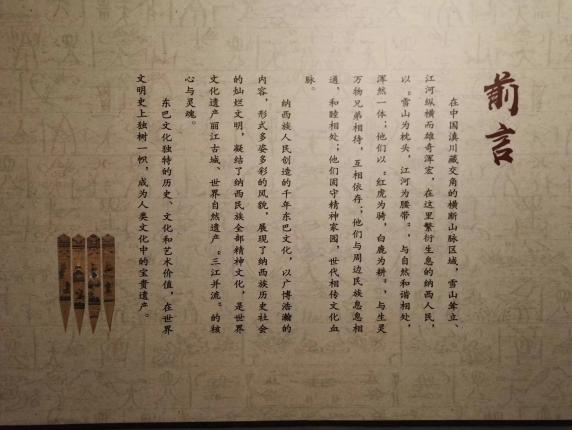 前言
在中国滇川藏交角的横断山脉区域，雪山耸立、
江河纵横而雄奇浑宏，在这里繁衍生息的纳西人民，
以“雪山为枕头，江河为腰带”，与自然和谐相处，
浑然一体；他们以“红虎为骑，白鹿为耕”，与生灵
万物兄弟相待，互相依存；他们与周边民族息息相
通，和睦相处；他们固守精神家园，世代相传文化血
脉。
纳西族人民创造的千年东巴文化，以广博浩瀚的
内容，形式多姿多彩的风貌，展现了纳西族历史社会
的灿烂文明，凝结了纳西民族全部精神文化，是世界
文化遗产丽江古城、世界自然遗产“三江并流”的核
心与灵魂。
东巴文化独特的历史、文化和艺术价值，在世界
文明史上独树一帜，成为人类文化中的宝贵遗产。